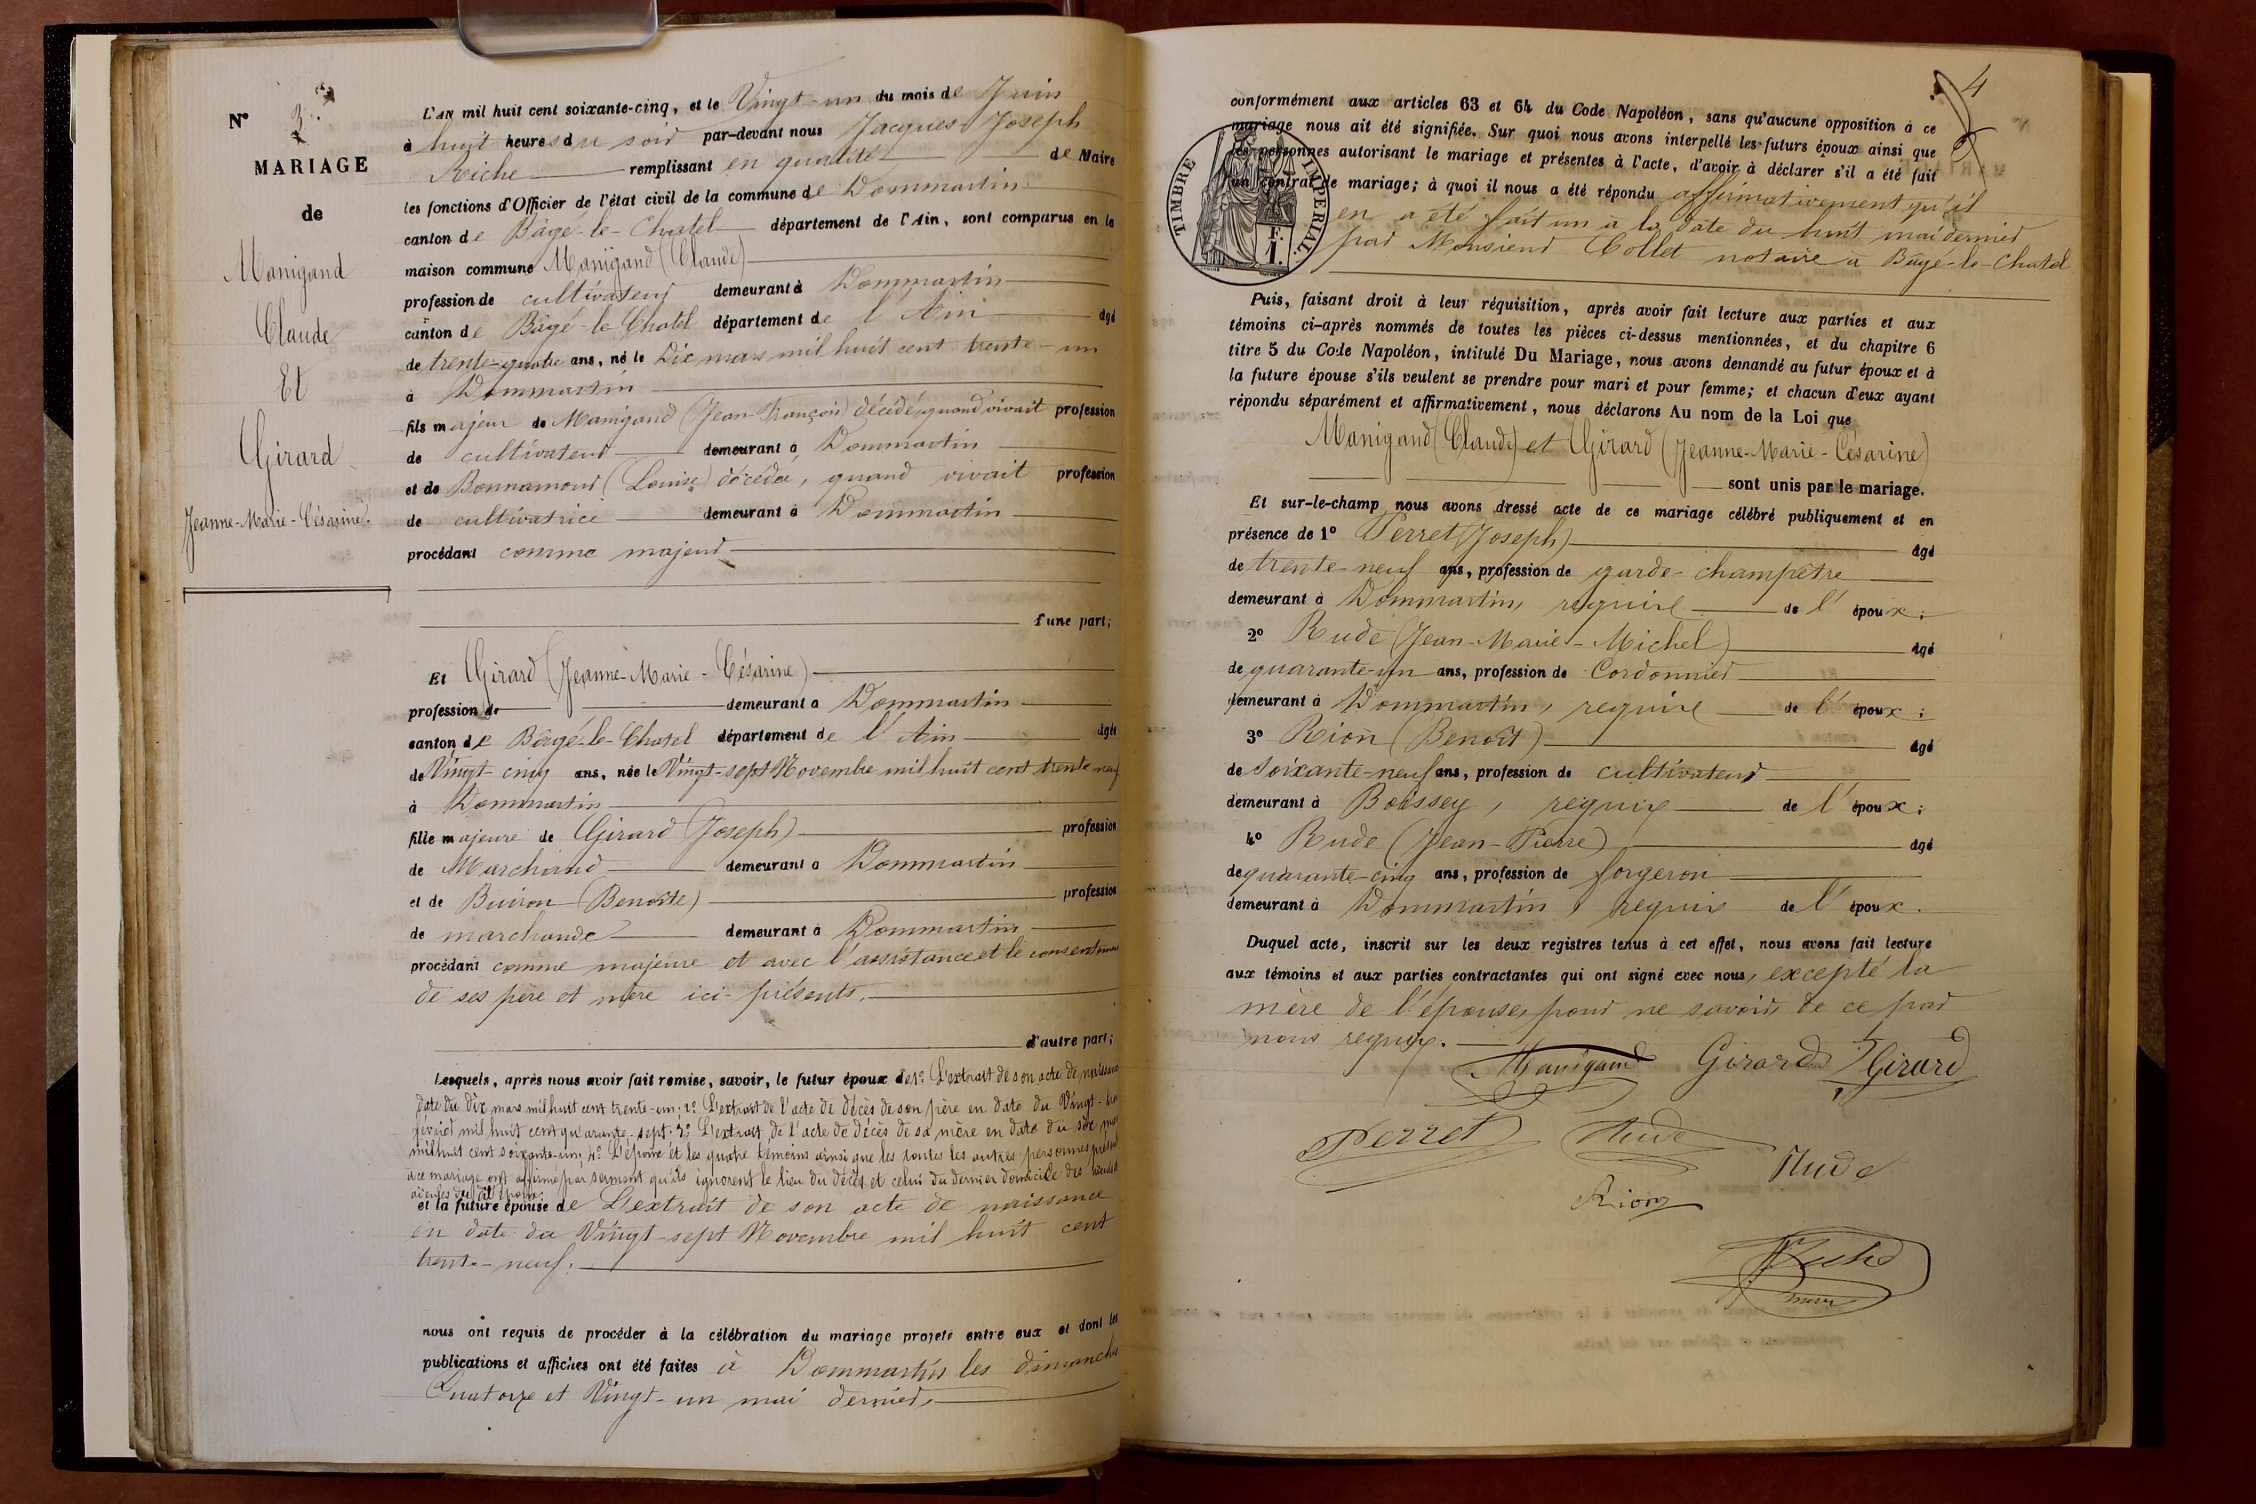 N° 3.
MARIAGE
de
Manigand
Claude
Et
Girard
Jeanne-Marie-Césarine.
L'AN mil huit cent soixante-cinq, et le Vingt-un du mois de Juin
à huit heures du soir par-devant nous Jacques Joseph
Riche remplissant en qualité de Maire
les fonctions d'Officier de l'état civil de la commune de Dommartin
canton de Bâgé-le-Chatel département de l'Ain, sont comparus en la
maison commune Manigand (Claude)
profession de cultivateur demeurant à Dommartin
canton de Bâgé-le-Chatel département de l'Ain âgé
de trente-quatre ans, né le Dix mars mil huit cent trente-un
à Dommartin
fils majeur de Manigand (Jean-François) décédé, quand vivait profession
de cultivateur demeurant à Dommartin
et de Bonnamour (Louise) décédée, quand vivait profession
de cultivatrice demeurant à Dommartin
procédant comme majeur
d'une part;
Et Girard (Jeanne-Marie-Césarine)
profession de demeurant à Dommartin
canton de Bâgé-le-Chatel département de l'Ain âgée
de Vingt-cinq ans, née le Vingt-sept Novembre mil huit cent trente-neuf
à Dommartin
fille majeure de Girard (Joseph) profession
de Marchand demeurant à Dommartin
et de Buiron (Benoîte) profession
de marchande demeurant à Dommartin
procédant comme majeure et avec l'assistance et le consentement
de ses père et mère ici présents.
d'autre part;
Lesquels, après nous avoir fait remise, savoir, le futur époux de 1° L'extrait de son acte de naissance
date du dix mars mil huit cent trente-un; 2° L'extrait de l'acte de décès de son père en date du Vingt-
février mil huit cent quarante-sept; 3° L'extrait de l'acte de décès de sa mère en date du six mai
mil huit cent soixante-un; 4° L'époux et les quatre témoins ainsi que les toutes les autres personnes présentes
à ce mariage ont affirmé par serment qu'ils ignorent le lieu du décès et celui du dernier domicile des
aïeules du dit époux.
et la future épouse de L'extrait de son acte de naissance
en date du Vingt-sept Novembre mil huit cent
trente-neuf.
nous ont requis de procéder à la célébration du mariage projeté entre eux et dont les
publications et affiches ont été faites à Dommartin les dimanches
Quatorze et Vingt-un mai dernier,
4
conformément aux articles 63 et 64 du Code Napoléon, sans qu'aucune opposition à ce
mariage nous ait été signifiée. Sur quoi nous avons interpellé les futurs époux ainsi que
les personnes autorisant le mariage et présentes à l'acte, d'avoir à déclarer s'il a été fait
un contrat de mariage; à quoi il nous a été répondu affirmativement qu'il
en a été fait un à la date du huit mai dernier
par Monsieur Collet notaire à Bâgé-le-Chatel
TIMBRE IMPERIAL.
F.
1.
Puis, faisant droit à leur réquisition, après avoir fait lecture aux parties et aux
témoins ci-après nommés de toutes les pièces ci-dessus mentionnées, et du chapitre 6
titre 5 du Code Napoléon, intitulé Du Mariage, nous avons demandé au futur époux et à
la future épouse s'ils veulent se prendre pour mari et pour femme; et chacun d'eux ayant
répondu séparément et affirmativement, nous déclarons Au nom de la Loi que
Manigand (Claude) et Girard (Jeanne-Marie-Césarine)
sont unis par le mariage.
Et sur-le-champ nous avons dressé acte de ce mariage célébré publiquement et en
présence de 1° Perret (Joseph) âgé
de trente-neuf ans, profession de garde-champêtre
demeurant à Dommartin, requise de l'époux;
2° Rude (Jean-Marie-Michel) âgé
de quarante-un ans, profession de Cordonnier
demeurant à Dommartin, requise de l'époux;
3° Rion (Benoît) âgé
de soixante-neuf ans, profession de cultivateur
demeurant à Boissey, requise de l'époux;
4° Rude (Jean-Pierre) âgé
de quarante-cinq ans, profession de forgeron
demeurant à Dommartin, requis de l'époux.
Duquel acte, inscrit sur les deux registres tenus à cet effet, nous avons fait lecture
aux témoins et aux parties contractantes qui ont signé avec nous, excepté la
mère de l'épouse, pour ne savoir, de ce par
nous requise.
Manigand Girard J Girard
Perret Rude
Rude
Rion
Riche
maire